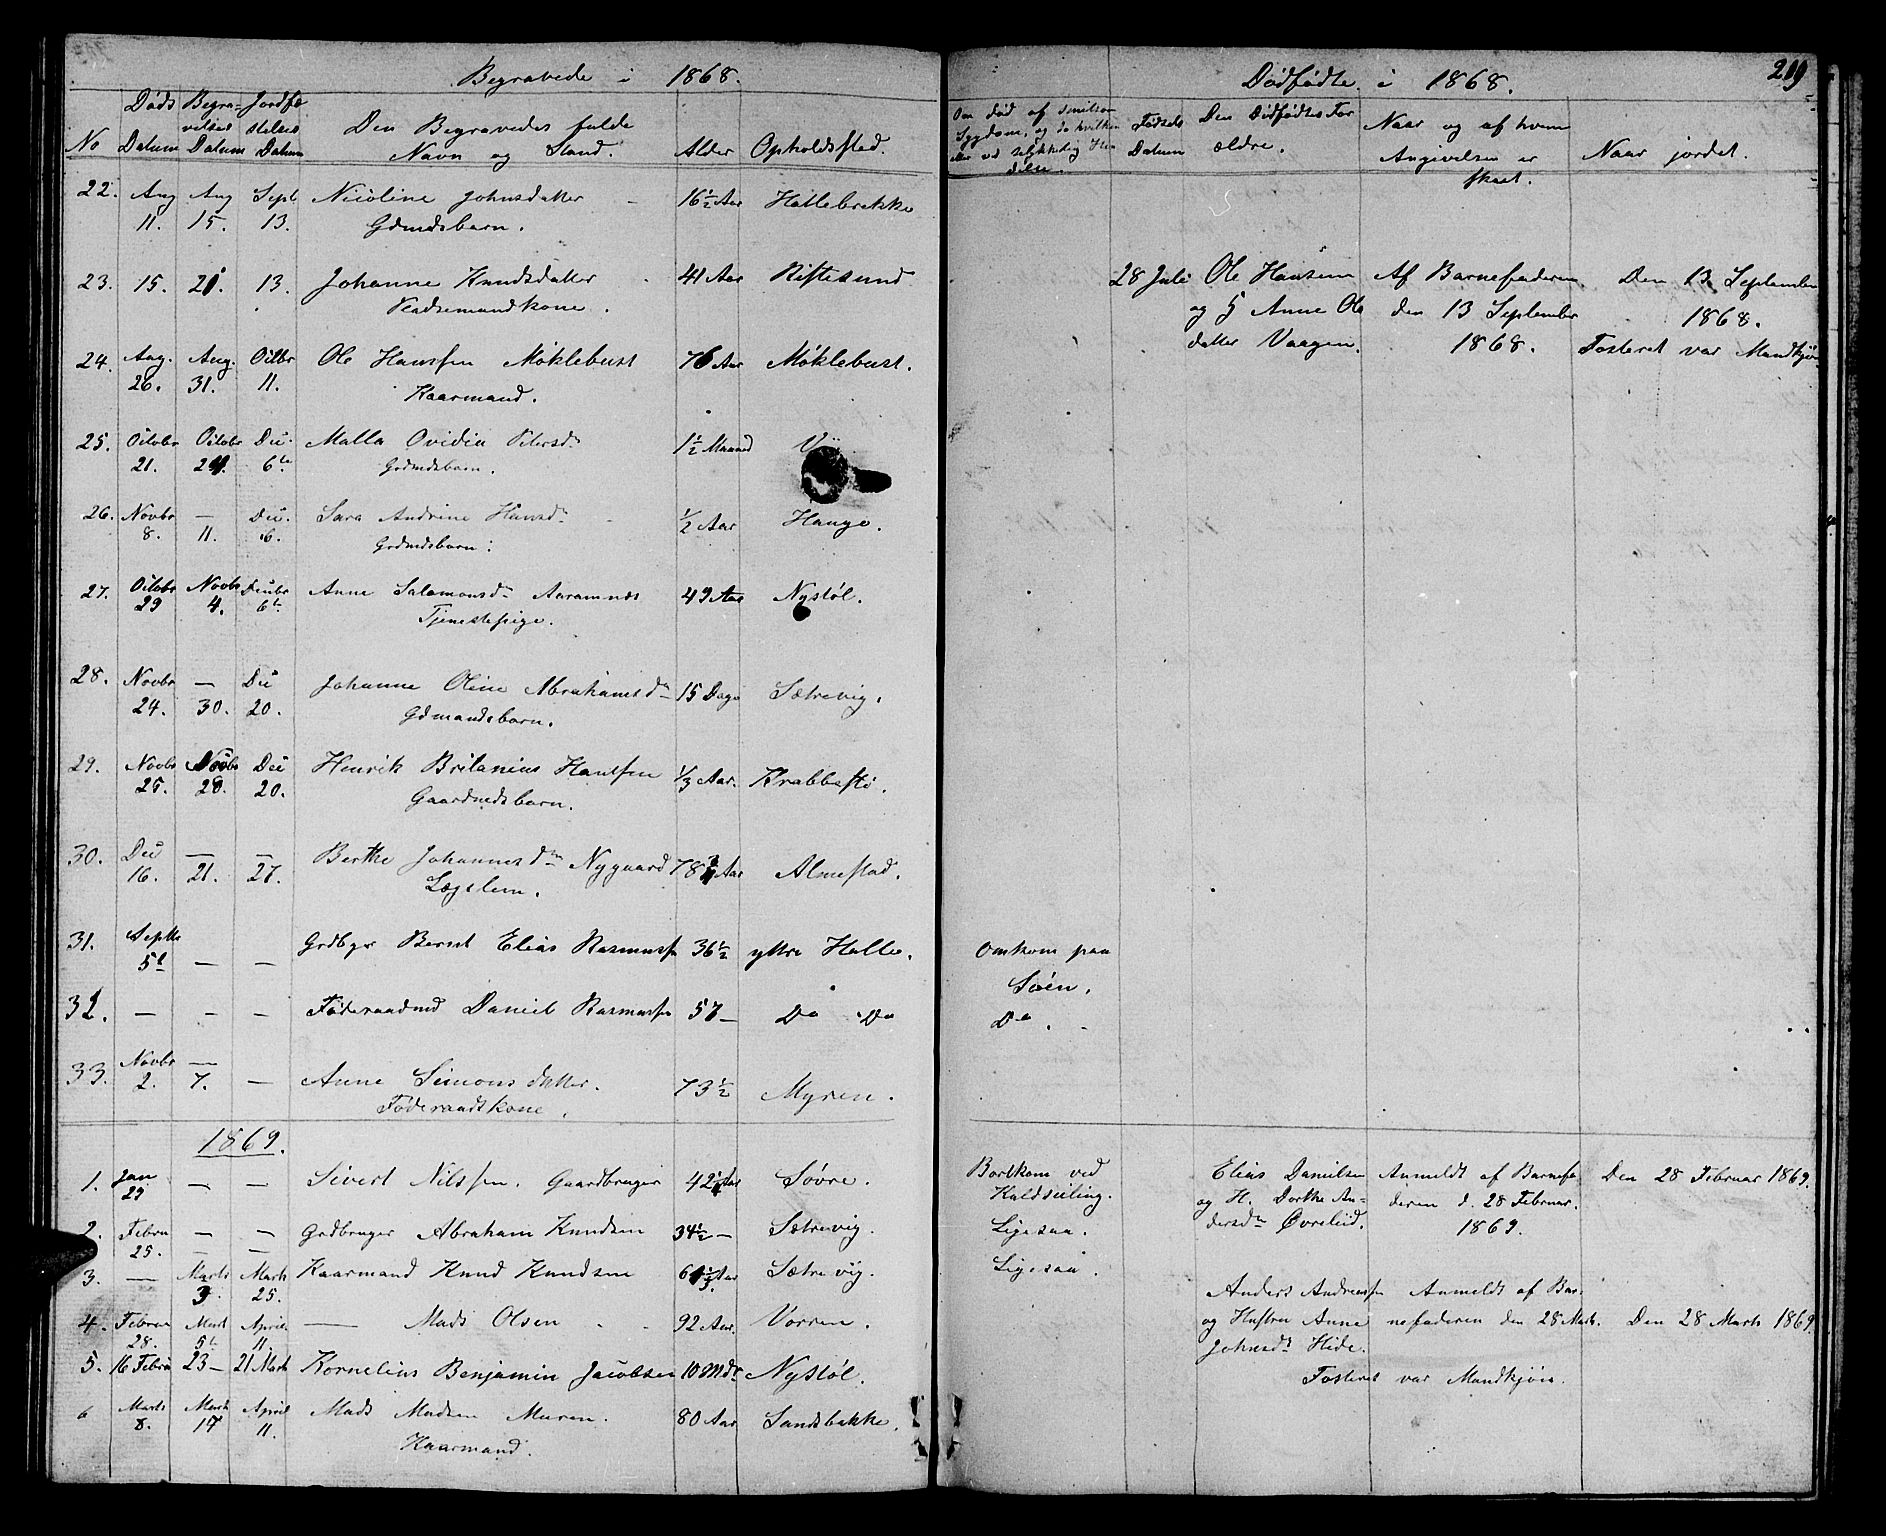 Begravede i 1868.
No Døds Datum Begravelses Datum Jordfæstelses Datum Den Begravedes fulde Navn og Stand. Alder Opholdssted.
22. Aug 11. Aug 15. Sept 13. Nicoline Johnsdatter 16½ Aar Hallebrekke
Gdmdsbarn.
23. 15. 21. 13. Johanne Knudsdatter 41 Aar Riftesund
Pladsemandkone.
24. Aug. 26. Aug. 31. Octbr 11. Ole Hanssen Møklebust 76 Aar Møklebust.
Kaarmand.
25. Octobr 21. Octobr Dec. 6te Malla Ovidia Petersd. 1½ Maaned
Grdmdsbarn.
26. Novbr 8. — 11. Dec. 6. Sara Andrine Hansd. ½ Aar Hauge.
Grdmdsbarn.
27. Octobr 29 Novbr 4. Decbr 6te Anne Salamonsd. Aaramnes 49 Aar Nystøl.
Tjenestepige.
28. Novbr 24. — 30. Dec 20. Johanne Oline Abrahamsd. 15 Dage Sætrevig.
Gdmandsbarn.
29. Novbr 25. 28. Dec 20. Henrik Britanius Hanssen ⅓ Aar. Krabbestø.
Gaardmdsbarn.
30. Dec 16. — 21. — 27. Berthe Johannesd. Nygaard 78 Aar Almestad.
Lægslem.
31. Septbr 5t — — Grdbgr Bernt Elias Rasmuss. 36½ yttre Halle.
32. — — — Føderaadmd Daniel Rasmuss. 57 — Do Do
33. Novbr 2. — 7. — Anne Simonsdatter. 73½ Myren.
Føderaadskone.
1869.
1. Jan 29 — — Sivert Nilssen. Gaardbruger 42½ Aar Søvre.
2. Febru 25. — — Grdbruger Abraham Knudsen 34½ — Sætrevig.
3. — Marts 3. Marts 25. Kaarmand Knud Knudsen Aar Sætrevig.
4. Februa 28. Mart 5t April 11. — Mads Olsen 92 Aar. Vorren.
5. 16 Febru 23 — 21 Marts Kornelius Benjamin Jacobsen 10 Mdr Nystøl.
6 Marts 8. Marts 17 April 11. Mads Madsen Muren. 80 Aar Sandsbakke.
Kaarmand.
219
Dødfødte i 1868.
Om død af smitsom Sygdom, og da hvilken eller ved ulykkelig Hændelse. Fødsels Datum Den Dødfødtes Forældre. Naar og af hvem Angivelsen er skeet. Naar jordet.
28 Juli Ole Hansen Af Barnefaderen Den 13 September
og H Anne Ols den 13 September 1868.
datter Vaagen. 1868. Fosteret var Mandkjøn
Omkom paa
Søen.
Do.
Bortkom ved Elias Danielsen Anmeldt af Barnefa- Den 28 Februar 1869.
Kuldseiling. og H. Dorthe An- deren d. 28 Februar.
Ligesaa. dersd. Øvrelid. 1869.
Ligesaa.
Anders Andreass. Anmeldt af Bar-
og Hustru Anne nefaderen den 28 Marts. Den 28 Marts 1869.
Johnsd. Hide.
Fosteret var Mandkjøn.